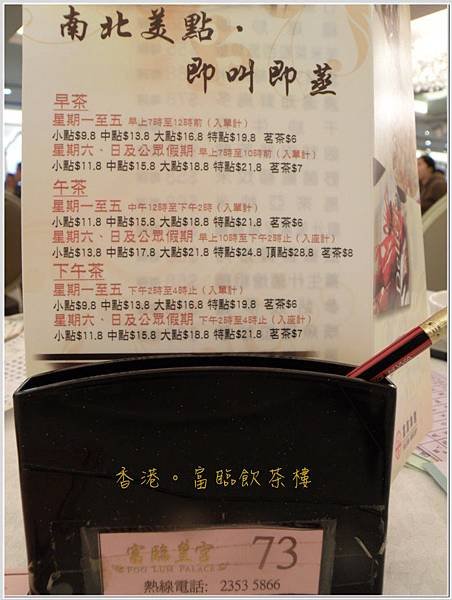 南北美點·
即叫即蒸
早茶
星期一至五 早上7時至12時前(入單計)
小點$9.8 中點$13.8 大點$16.8 特點$19.8 茗茶$6
星期六、日及公眾假期 早上7時至10時前(入單計)
小點$11.8 中點$15.8 大點$18.8 特點$21.8 茗茶$7
午茶
星期一至五 中午12時至下午2時(入單計)
小點$11.8 中點$15.8 大點$18.8 特點$21.8 茗茶$6
星期六、日及公眾假期 早上10時至下午2時止(入座計)
小點$13.8 中點$17.8 大點$21.8 特點$24.8 頂點$28.8 茗茶$8
下午茶
星期一至五 下午2時至4時止(入單計)
小點$9.8 中點$13.8 大點$16.8 特點$19.8 茗茶$6
星期六、日及公眾假期 下午2時至4時止(入座計)
小點$11.8 中點$15.8 大點$18.8 特點$21.8 茗茶$7
香港。富臨飲茶樓
富臨皇宮
FOO LUM PALACE
73
熱線電話: 2353 5866